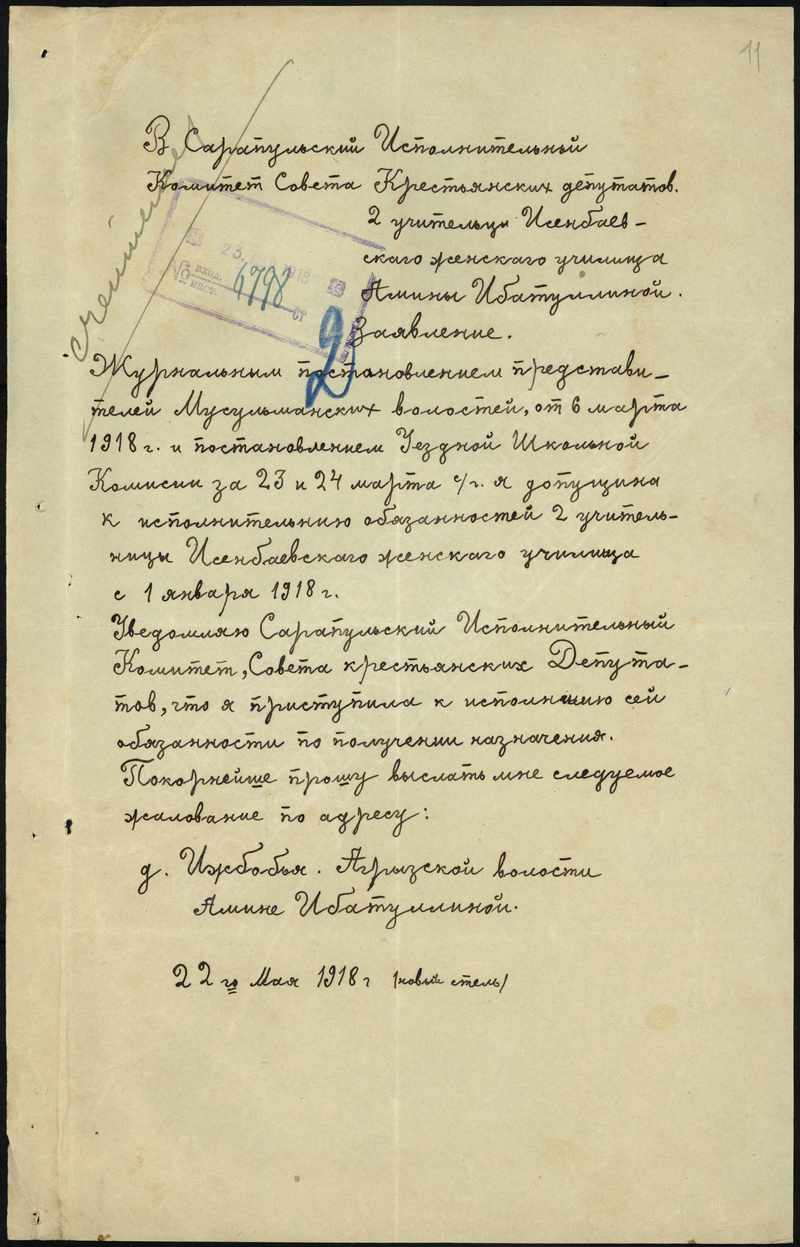 11
В Сарапульский Исполнительный
Комитет Совета Крестьянских депутатов.
2 учительци Исенбаев-
скаго женскаго училища
Амины Ибатуллиной.
Заявление.
23 1918
№ вход. 6798
2
Журнальным постановлением представи-
телей Мусульманских волостей, от 6 марта
1918 г. и постановлением Уездной Школьной
Комисии за 23 и 24 марта с/г. я допущина
к исполнительнию обязанностей 2 учитель-
ницы Исенбаевскаго женскаго училища
с 1 января 1918 г.
Уведомляю Сарапульский Исполнительный
Комитет, Совета крестьянских Депута-
тов, что я приступила к исполнию сей
обязанности по получении назначения.
Покорнейше прошу выслать мне следуемое
жалование по адресу:
д. Ижбобья. Агрызской волости
Амине Ибатуллиной.
22 го Мая 1918 г (новый стель)